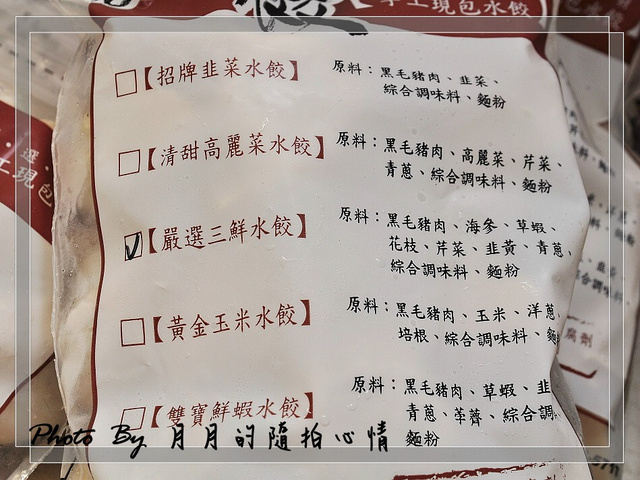 手工現包水餃
【招牌韭菜水餃】
原料：黑毛豬肉、韭菜、
綜合調味料、麵粉
【清甜高麗菜水餃】
原料：黑毛豬肉、高麗菜、芹菜、
青蔥、綜合調味料、麵粉
【嚴選三鮮水餃】
原料：黑毛豬肉、海參、草蝦、
花枝、芹菜、韭黃、青蔥、
綜合調味料、麵粉
【黃金玉米水餃】
原料：黑毛豬肉、玉米、洋蔥
培根、綜合調味料、麵
【雙寶鮮蝦水餃】
原料：黑毛豬肉、草蝦、韭
青蔥、荸薺、綜合調
麵粉
選
工現包
腐劑
Photo By 月月的隨拍心情